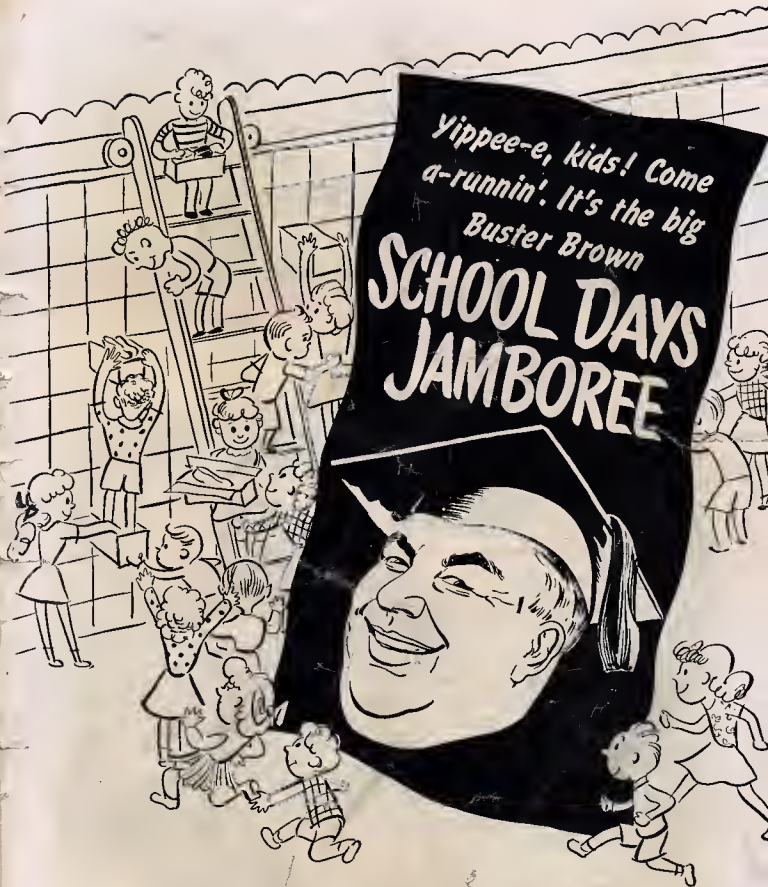 Yippee-e, kids! Come
a-runnin'. It's the big
Buster Brown
SCHOOL DAYS
JAMBOREE